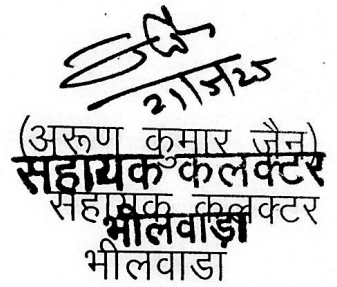 (अरुण कुमार जैन)
सहायक कलक्टर
सहायक कलक्टर
भीलवाड़ा
भीलवाडा